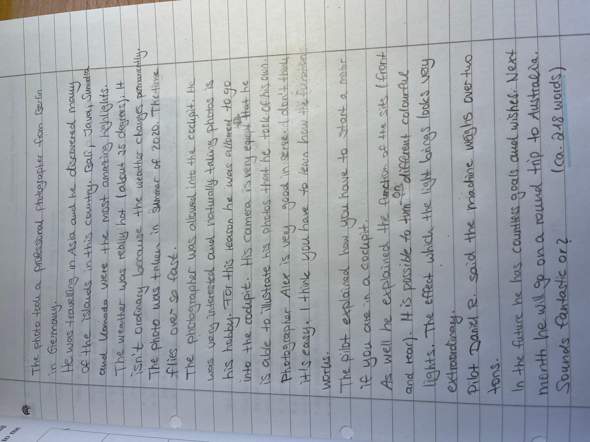 The photo took a professional photographer from Berlin
in Germany.
He was travelling in Asia and he discovered many
of the islands in this country. Bali, Java, Sumatra
and Komodo were the most amazing highlights.
The weather was really hot (about 25 degrees). It
isn't ordinary because the weather changes permanently.
The photo was taken in summer of 2020. The time
flies over so fast.
The photographer was allowed into the cockpit. He
was very interested and naturally taking photos is
his hobby. For this reason he was allowed to go
into the cockpit. His camera is very that he
is able to illustrate his photos that he took of his own.
Photographer Alex is very good in sense. I don't think
it is easy. I think you have to learn how the
works.
The pilot explained how you have to start a motor
if you are in a cockpit.
As well he explained the function of the sits (front
and rear). It is possible to turn on different colourful
lights. The effect which the light brings looks very
extraordinary.
Pilot Daniel R. said the machine weighs over two
tons.
In the future he has countless goals and wishes. Next
month he will go on a round trip to Australia.
Sounds fantastic or? (ca. 218 words)